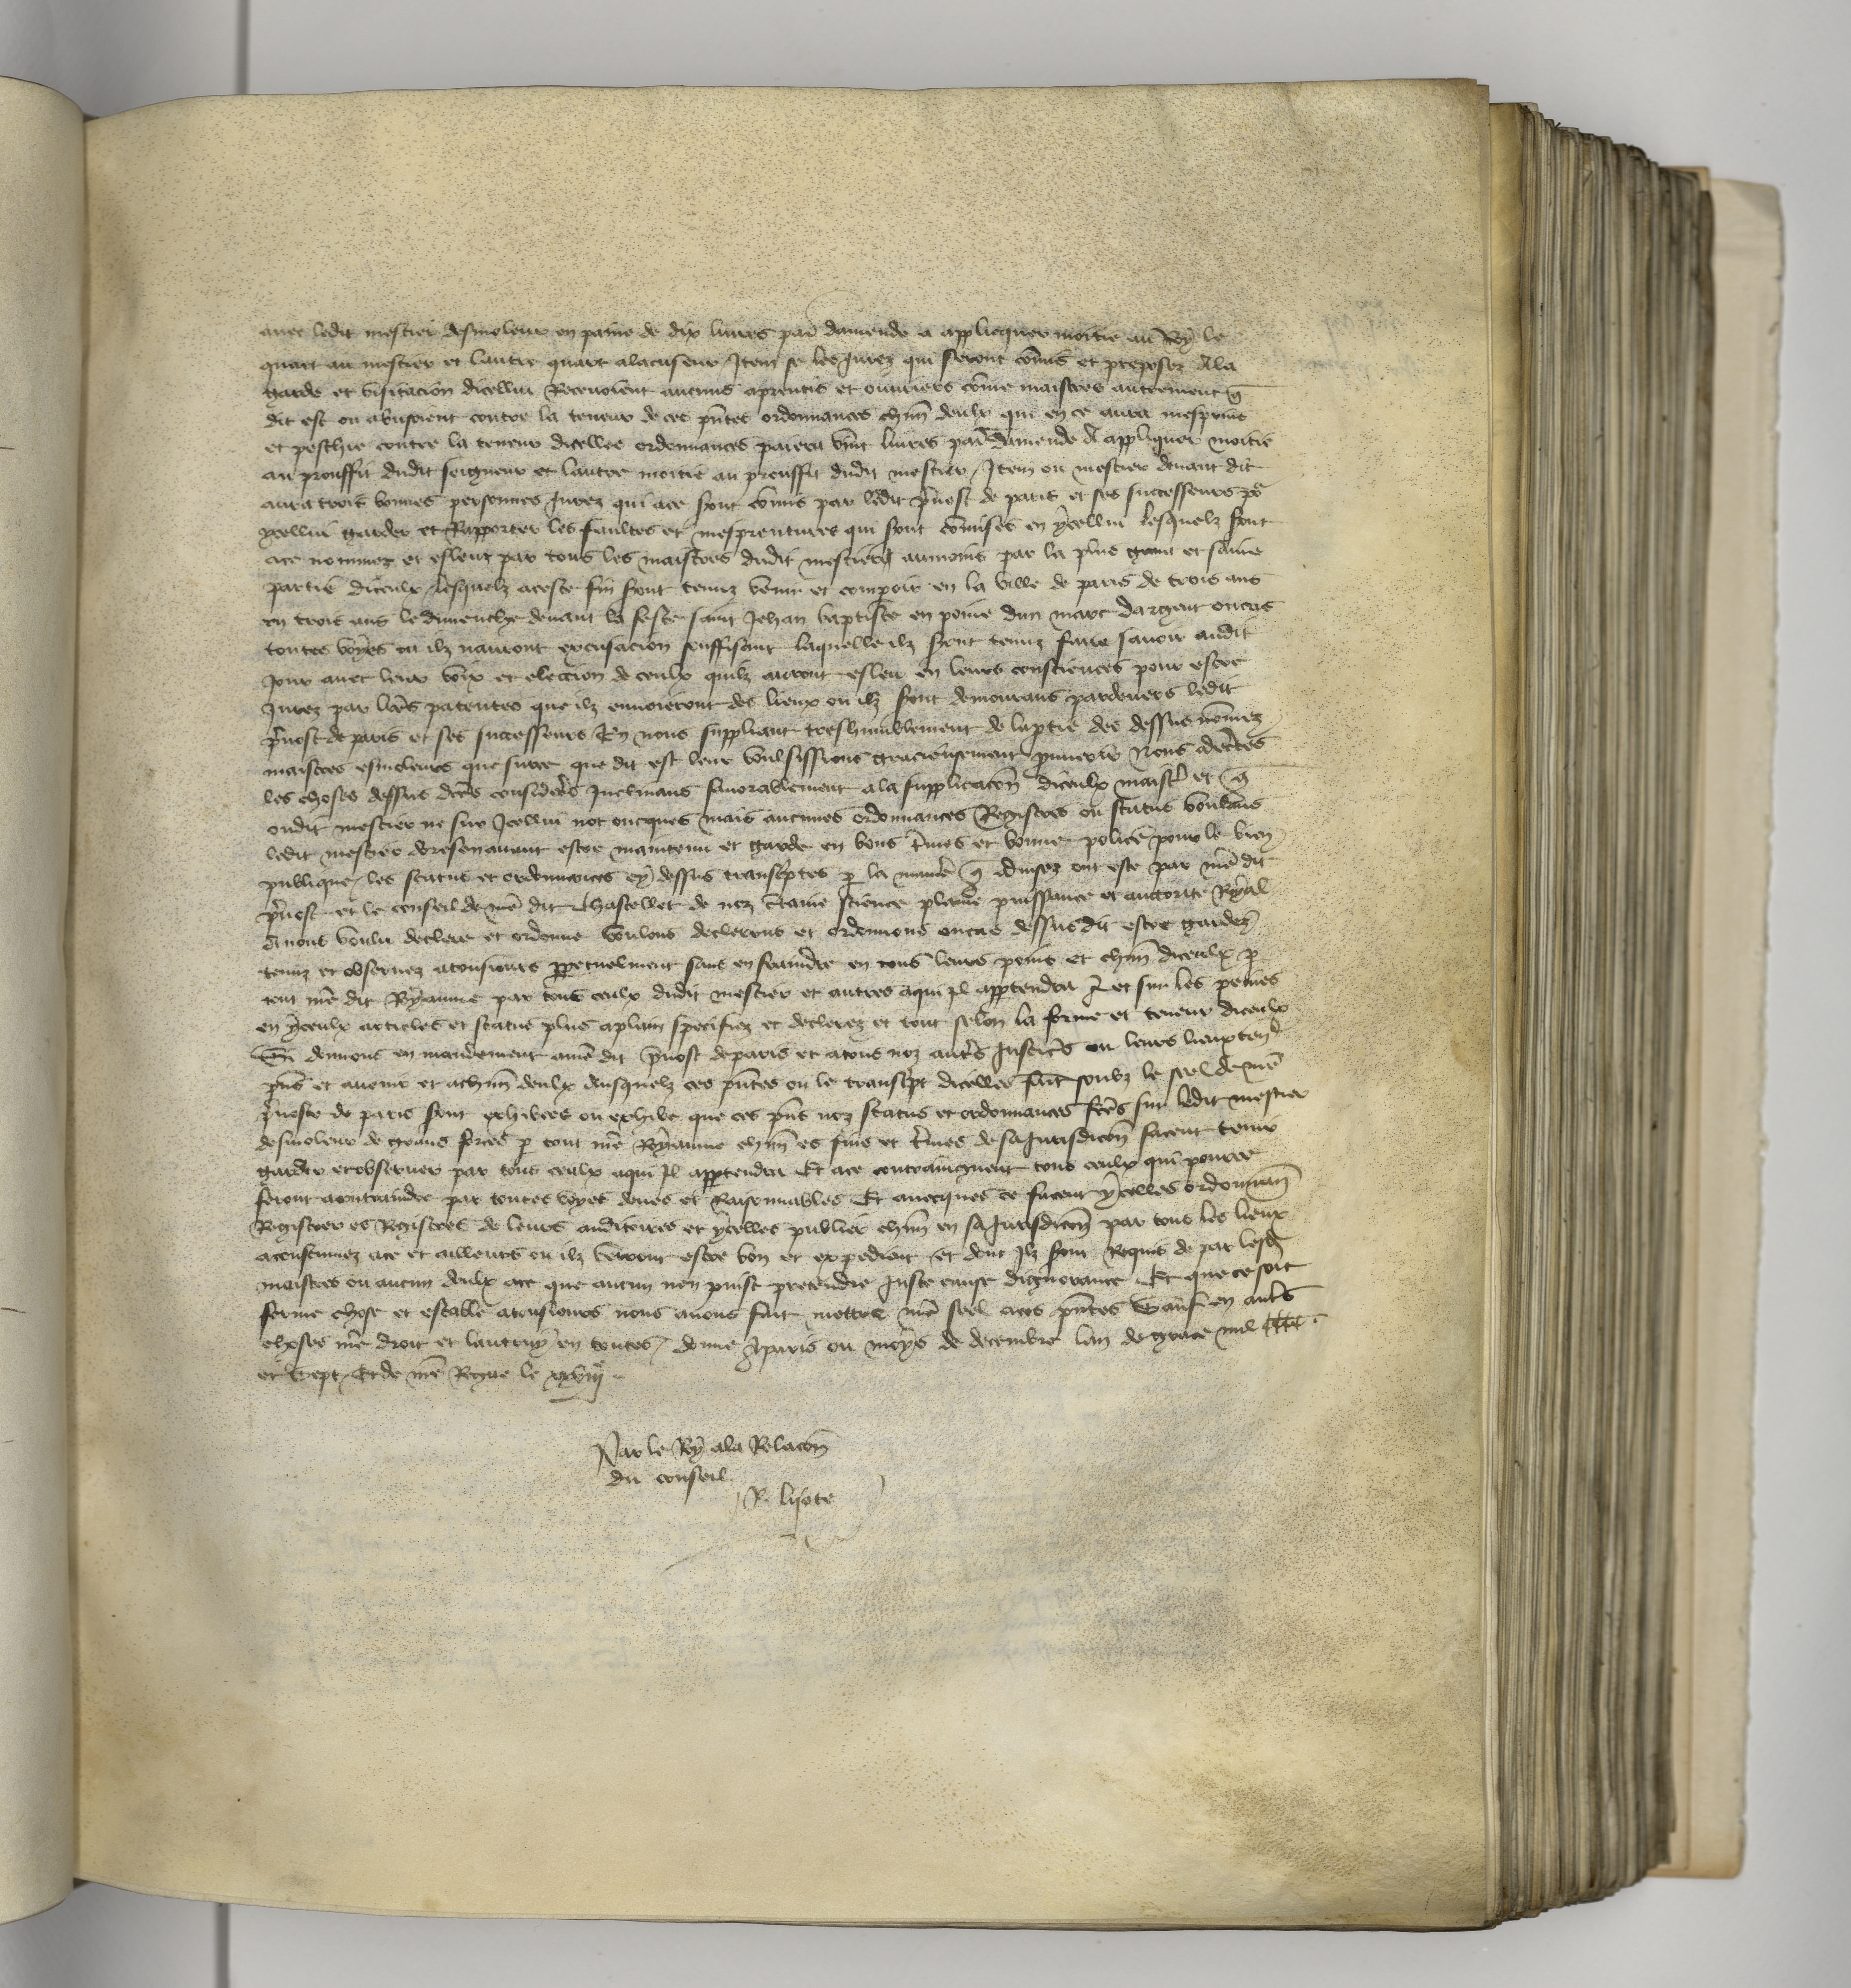 auec ledit mestier desmoleur en paine de dix liures par̄ damende a applicquer moitie au Roy le
quart au mestier et lautre quart alacuseur / Item se les Jurez qui seront cōmis et preposez Ala
garde et visitacion dicellui Receuoient aucuns aprentis et ouuriers cōme maistres autrement q̄
dit est ou abusoient contre la teneur de ces pn̄tes ordonnances chūn deulx qui en ce aura mespris
et peschie contre la teneur dicelles ordonnances paiera vint liures par̄ damende A appliquer moitie
au prouffit dudit seigneur et lautre moitie au prouffit dudit mestier / Item ou mestier deuant dit
aura trois bonnes personnes Jurez qui ace sont cōmis par ledit p̄uost de paris et ses successeurs po᷑
ycellui garder et Rapporter les faultes et mesprentures qui sont cōmises en ycellui lesquelz sont
ace nommez et esleuz par tous les maistres dudit mestier aumoins par la plus grant et saine
partie diceulx / lesquelz aceste fin sont tenuz venir et compoir en la ville de paris de trois ans
en trois ans le dimenche deuant la feste saint Jehan baptiste en peine dun marc dargent ou cas
toutes voyes ou ilz nauront excusacion souffisant laquelle ilz sont tenuz faire sauoir audit
Jour auec leur voix et eleccion de ceulx quilz auront esleu en leurs consciences pour estre
Jurez par lr̄es patentes que ilz enuoieront des lieux ou ilz sont demourans pardeuers ledit
p̄uost de paris et ses successeurs / En nous suppliant treshumblement de la p̄tie des dessus nōmez
maistres esmoleurs que sur ce que dit est leur voulsissions gracieusement pourueoir Nous adcer̄tes
les choses dessus dc̄es consider̄es Inclinans fauorablement ala supplicacōn diceulx maistr̄ et q̄
oudit mestier ne sur Icellui not oncques mais aucunes ordonnances Registres ou status voulans
ledit mestier doresenauant estre maintenu et garde en bons t̄mes et bonne police pour le bien
publique / les status et ordonnances cy dessus transcr̄ptes p̱ la manier̄ q̄ aduisez ont este par nr̄e dit
p̄uost et le conseil de nr̄e dit Chastellet de noz c̄taine science plaine puissance et auctorite Royal
Auons voulu declere et ordonne voulons declerons et ordonnons ou cas dessusdit estre gardez
tenuz et obseruez atousiours p̱petuelment sans enfraindre en tous leurs poins et chūn diceulx p̱
tout nr̄e dit Royaume par tous ceulx dudit mestier et autres aqui Il app̱tendra A et sur les peines
en yceulx articles et status plus aplain specifiez et declerez et tout selon la forme et teneur diceulx
Si donnons en mandement anr̄e dit p̄uost de paris et atous noz autr̄s Justicie᷑s ou leurs lieuxten᷑
p̄ns et auenir et achūn deulx ausquelz ces pn̄tes ou le transcr̄pt dicelles fait soubz le seel de nr̄e
p̄uoste de paris sont exhibees ou exhibe que ces p̄ns noz status et ordonnances fc̄es sur ledit mestier
desmoleur de grans forces p̱ tout nr̄e Royaume chūn es fins et t̄mes de sa Jurisdicōn facent tenir
garder et obseruer par tous ceulx aqui Il app̱tendra Et ace contraingnent tous ceulx qui pource
seront acontraindre par toutes voyes deues et Raisonnables Et auecques ce facent ycelles ordonnan̄
Registrer es Registres de leurs auditoires et ycelles publier chūn en sa Jurisdicōn par tous les lieux
acoustumez ace et ailleurs ou ilz verront estre bon et expedient et dont Ilz sont Requis de par lesd̄
maistres ou aucun deulx ace que aucun nen puist pretendre Juste cause dignorance Et que ce soit
ferme chose et estable atousiours nous auons fait mettre nr̄e seel aces pn̄tes Sauf en autr̄s
choses nr̄e droit et lautruy en toutes / donne Aparis ou moys de decembre lan de grace mil CCCC
et Sept / Et de nr̄e Regne le xxviijᵉ
Par le Roy ala Relacōn
du conseil
R. lijote